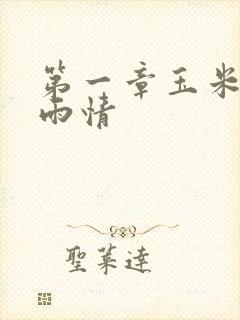 第一章玉米
雨情
聖萊達